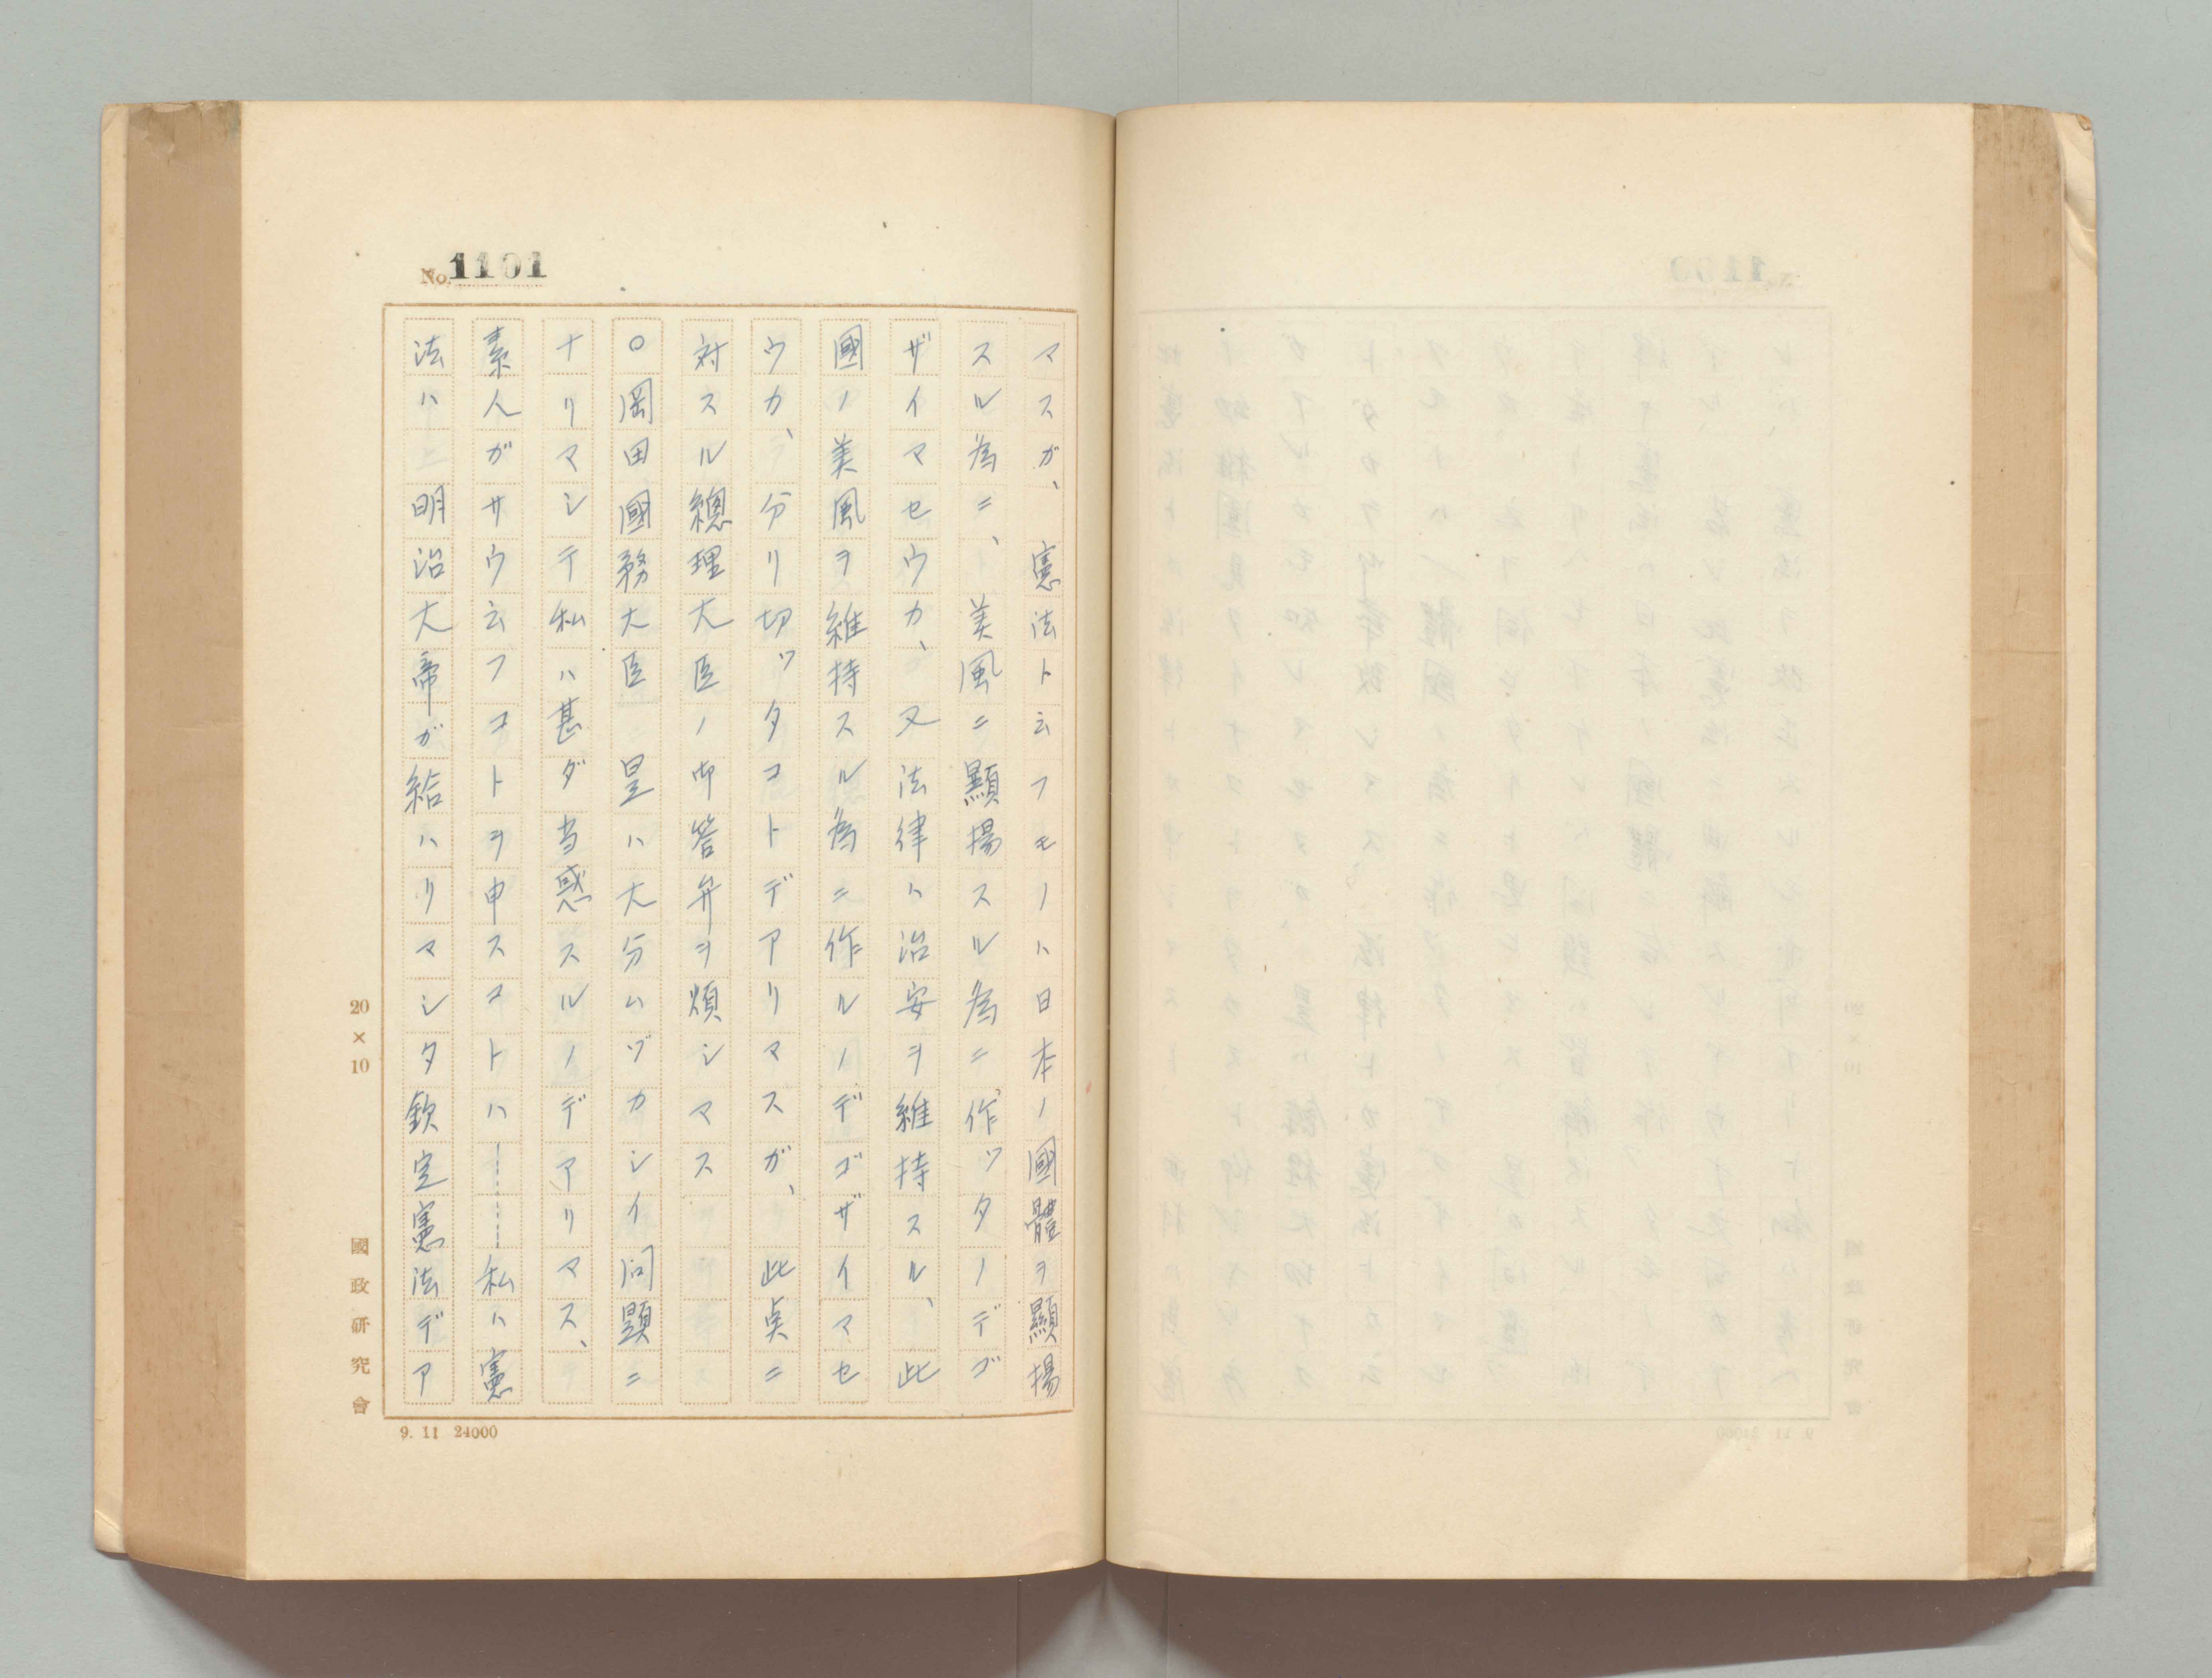 No. 1101
マスガ、憲法ト云フモノハ日本ノ國體ヲ顯揚
スル為ニ、美風ニ顯揚スル為ニ作ツタノデゴ
ザイマセウカ、又法律ハ治安ヲ維持スル、此
國ノ美風ヲ維持スル為ニ作ルノデゴザイマセ
ウカ、分リ切ツタコトデアリマスガ、此貞ニ
対スル總理大臣ノ御答弁ヲ煩シマス
○岡田國務大臣 是ハ大分ムヅカシイ問題ニ
ナリマシテ私ハ甚ダ当惑スルノデアリマス、
素人ガサウ云フコトヲ申スコトハ――私ハ憲
法ハ明治大帝ガ給ハリマシタ欽定憲法デア
20×10
國政研究會
9. 11 24000